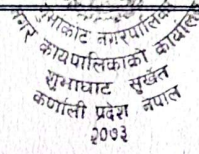 गुर्भाकोट नगरपालिका
नगर कार्यपालिकाको कार्यालय
गुभाघाट सुर्खेत
कर्णाली प्रदेश नेपाल
२०७३